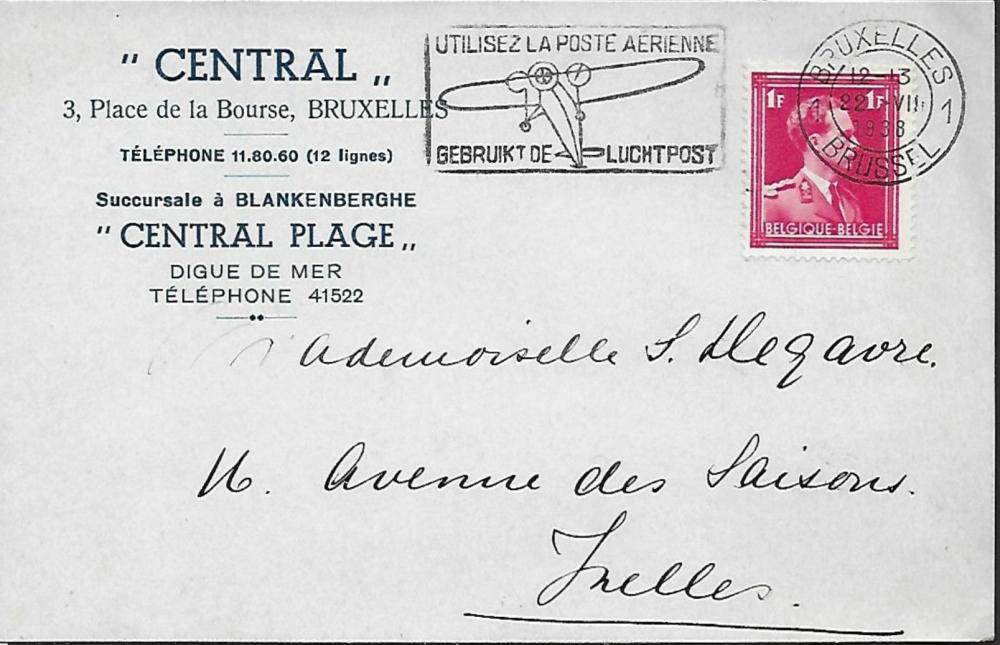 " CENTRAL „
3, Place de la Bourse, BRUXELLES
TÉLÉPHONE 11.80.60 (12 lignes)
Succursale à BLANKENBERGHE
" CENTRAL PLAGE „
DIGUE DE MER
TÉLÉPHONE 41522
UTILISEZ LA POSTE AÉRIENNE
GEBRUIKT DE LUCHTPOST
BRUXELLES
12-13
1 22 VII 1
1938
BRUSSEL
1F 1F
BELGIQUE-BELGIË
Mademoiselle S. Delgavre.
16. Avenue des Saisons.
Ixelles.